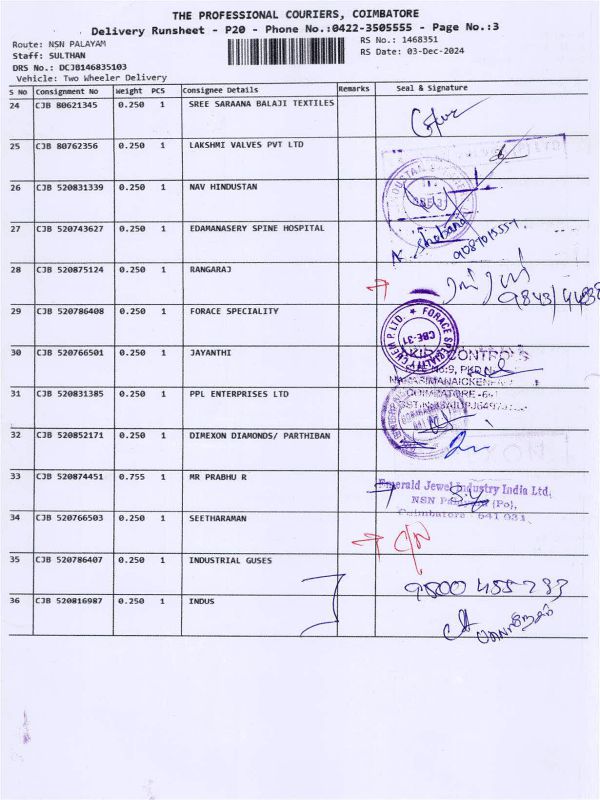 THE PROFESSIONAL COURIERS, COIMBATORE
Delivery Runsheet - P20 - Phone No.:0422-3505555 - Page No.:3
Route: NSN PALAYAM
RS No.: 1468351
Staff: SULTHAN
RS Date: 03-Dec-2024
DRS No.: DCJB146835103
Vehicle: Two Wheeler Delivery
S No Consignment No Weight PCS Consignee Details Remarks Seal & Signature
24 CJB 80621345 0.250 1 SREE SARAANA BALAJI TEXTILES
25 CJB 80762356 0.250 1 LAKSHMI VALVES PVT LTD
26 CJB 520831339 0.250 1 NAV HINDUSTAN
27 CJB 520743627 0.250 1 EDAMANASERY SPINE HOSPITAL
28 CJB 520875124 0.250 1 RANGARAJ
29 CJB 520786408 0.250 1 FORACE SPECIALITY
FORACE SPECIALITY CHEM P. LTD.
CBE-31
30 CJB 520766501 0.250 1 JAYANTHI
CONTROLS
31 CJB 520831385 0.250 1 PPL ENTERPRISES LTD
32 CJB 520852171 0.250 1 DIMEXON DIAMONDS/ PARTHIBAN
33 CJB 520874451 0.755 1 MR PRABHU R
Emerald Jewel Industry India Ltd,
NSN (Po),
Coimbatore - 641 031
34 CJB 520766503 0.250 1 SEETHARAMAN
35 CJB 520786407 0.250 1 INDUSTRIAL GUSES
36 CJB 520816987 0.250 1 INDUS